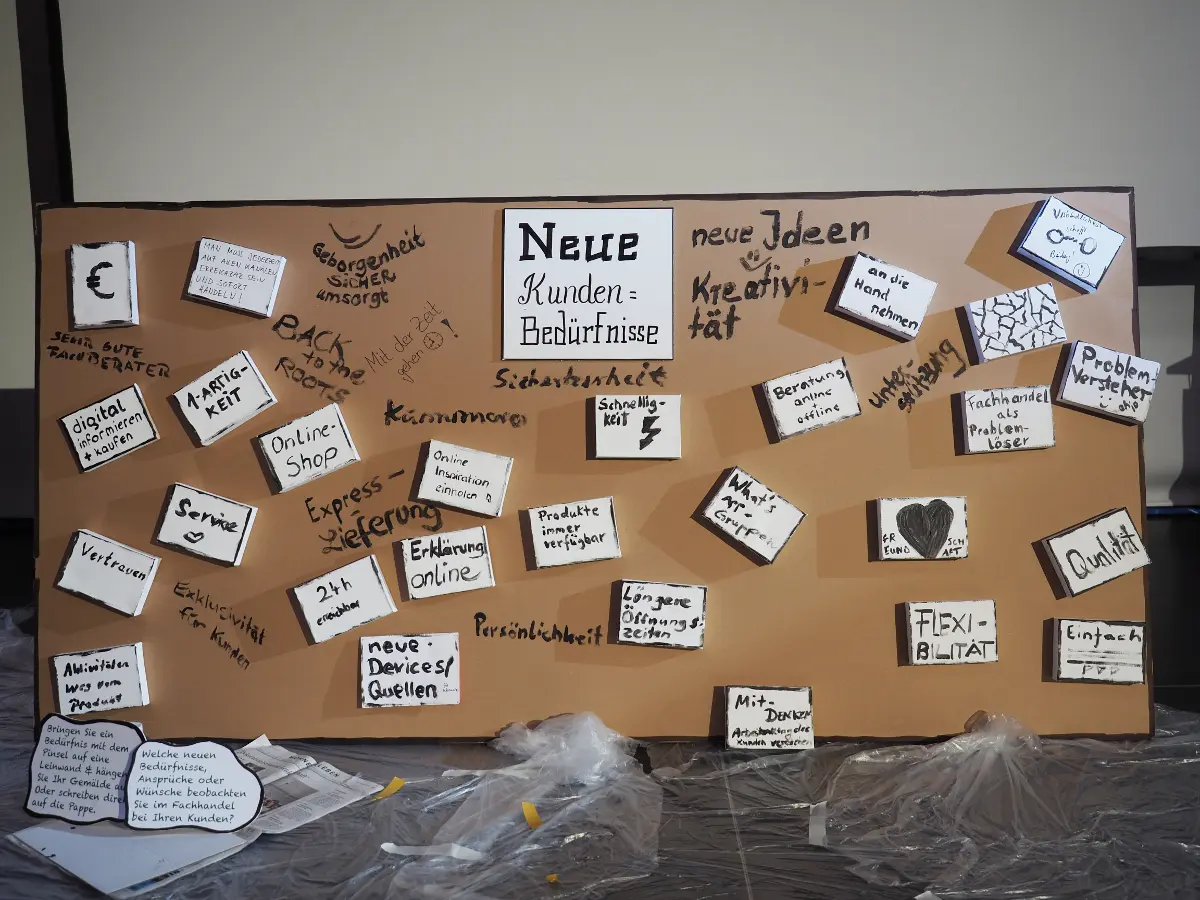 Neue
Kunden=
Bedürfnisse
€
MAN MUSS JEDERZEIT
AUF ALLEN KANÄLEN
ERREICHBAR SEIN
UND SOFORT
HANDELN!
Geborgenheit
SICHER
umsorgt
neue Ideen
Kreativi-
tät
an die
Hand
nehmen
SEHR GUTE
FACHBERATER
BACK
to the
ROOTS
Mit der Zeit
gehen !
Sicherheit
Problem-
versteher
digital
informieren
+ kaufen
1-ARTIG-
KEIT
Online-
Shop
Schnellig-
keit
Beratung
online
+
offline
unter-
stützung
Fachhandel
als
Problem-
löser
Online
Inspiration
einholen
Service
Express-
Lieferung
Produkte
immer
verfügbar
What's
Gruppen
FR
EUND
SCH
AFT
Qualität
Vertrauen
Erklärung
online
24h
erreichbar
Exklusivität
für Kunden
Persönlichkeit
Längere
Öffnungs-
zeiten
FLEXI-
BILITÄT
Einfach
neue
Devices/
Quellen
Aktivitäten
weg vom
Produkt
Mit-
DENKEN
Kunden
Bringen Sie ein
Bedürfnis mit dem
Pinsel auf eine
Leinwand & hängen
Sie Ihr Gemälde
Oder schreiben
auf die Pappe.
Welche neuen
Bedürfnisse,
Ansprüche oder
Wünsche beobachten
Sie im Fachhandel
bei Ihren Kunden?